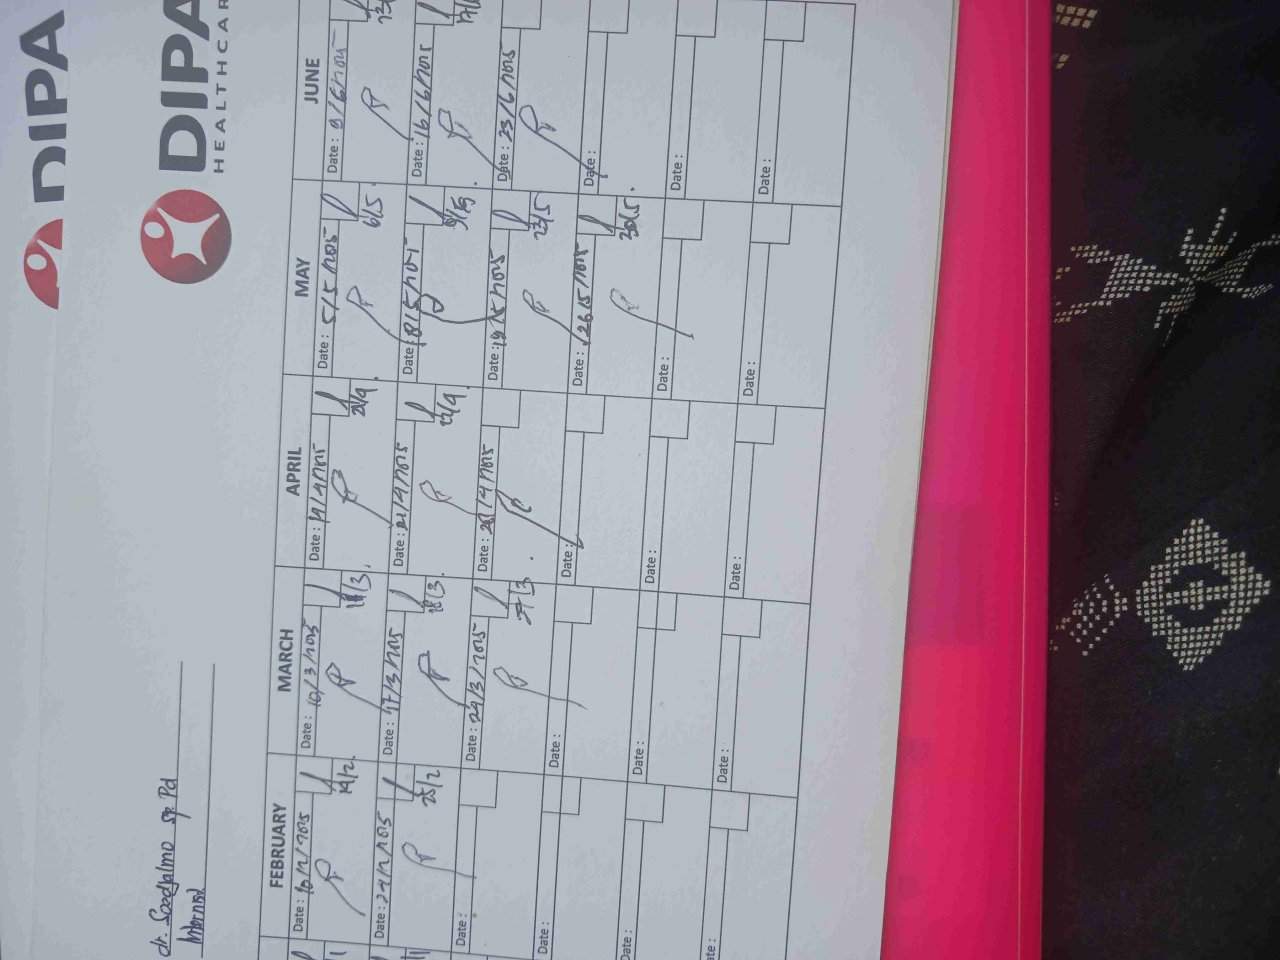 DIPA
DIPA
HEALTHCAR
dr. Soedjalmo Sp. Pd
Internist
FEBRUARY MARCH APRIL MAY JUNE
Date : 10/2/2025 Date : 10/3/2025 Date : Date : 5/5/2025 Date : 9/6/2025
19/2. 6/5.
Date : 24/2/2025 Date : 17/3/2025 Date : 21/4/2025 Date : Date : 16/6/2025
25/2 18/3. 22/4.
Date : Date : 24/3/2025 Date : 28/4/2025 Date : 19/5/2025 Date : 23/6/2025
23/5
Date : Date : Date : Date : 26/5/2025 Date :
30/5.
Date : Date : Date : Date : Date :
ate : Date : Date : Date : Date :